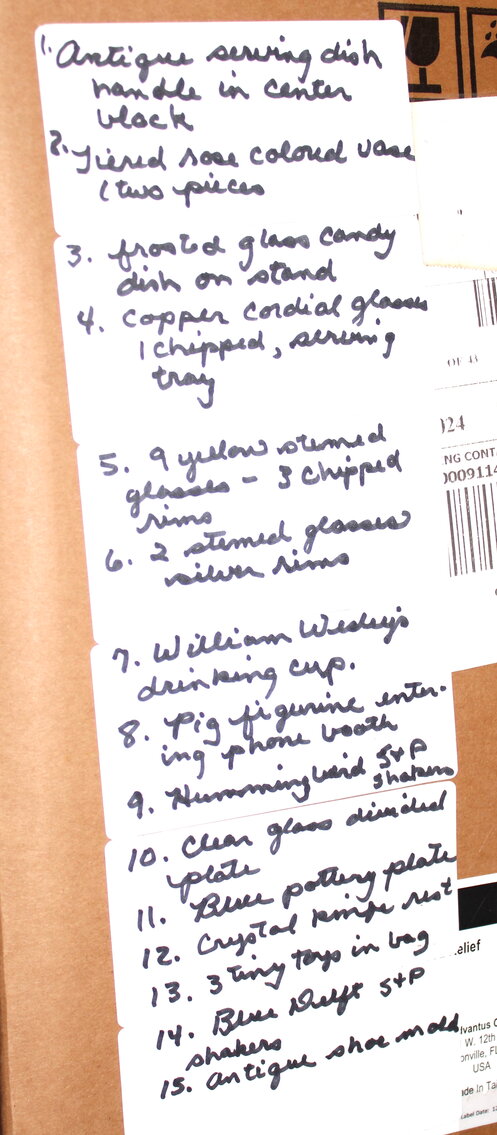 1. Antique serving dish
handle in center
black
2. Tiered rose colored vase
(two pieces
3. frosted glass candy
dish on stand
4. Copper cordial glasses
1 chipped, serving
tray
5. 9 yellow stemmed
glasses - 3 chipped
rims
6. 2 stemmed glasses
silver rims
7. William Wesley's
drinking cup.
8. Pig figurine enter-
ing phone booth
9. Hummingbird S+P
shakers
10. Clear glass divided
plate
11. Blue pottery plate
12. Crystal knife rest
13. 3 tiny toys in bag
14. Blue Delft S+P
shakers
15. antique shoe mold
OF 43
024
NG CONT
000911
elief
vantus
W. 12th
onville, FL
USA
ade In Ta
Label Date: 12